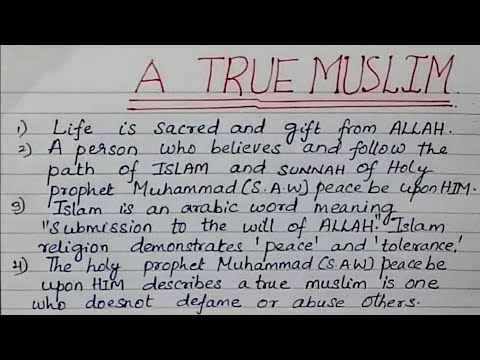 A TRUE MUSLIM
1) Life is sacred and gift from ALLAH.
2) A person who believes and follow the
path of ISLAM and SUNNAH of Holy
prophet Muhammad (S.A.W) peace be upon HIM.
3) Islam is an arabic word meaning
"submission to the will of ALLAH." Islam
religion demonstrates 'peace' and 'tolerance.'
4) The holy prophet Muhammad (S.A.W) peace be
upon HIM describes a true muslim is one
who doesnot defame or abuse others.